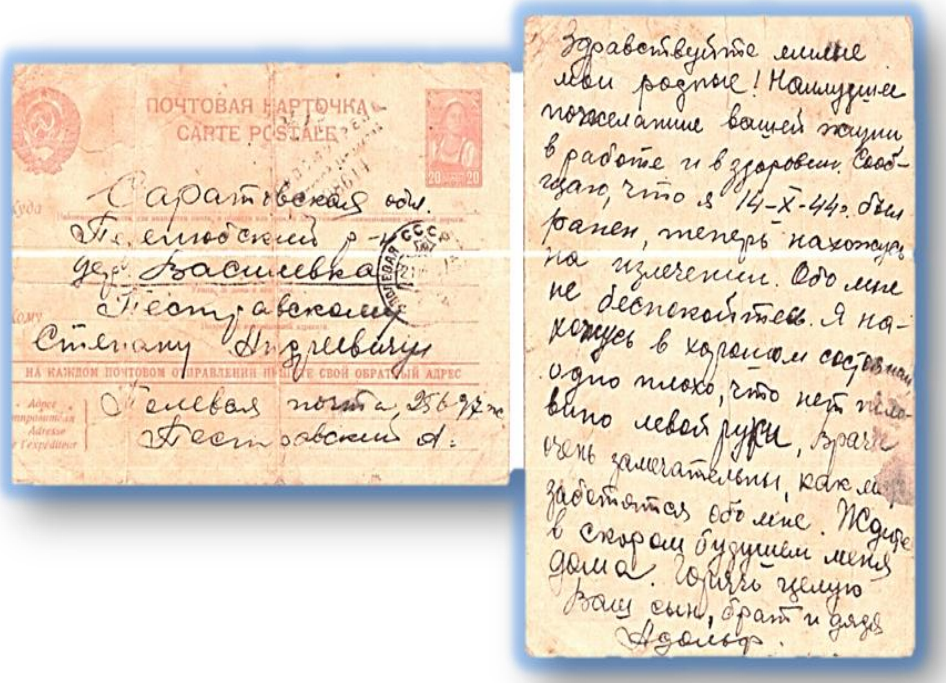 ПОЧТОВАЯ КАРТОЧКА
CARTE POSTALE
20 20
Куда
Саратовская обл.
Пелюбский р-н
дер. Василевка
Кому
Пестравскому
Степану Андреевичу
НА КАЖДОМ ПОЧТОВОМ ОТПРАВЛЕНИИ ПИШИТЕ СВОЙ ОБРАТНЫЙ АДРЕС
Адрес
отправителя
Adresse
de l'expéditeur
Полевая почта, 25697-ж
Пестравский А.
ПОЛЕВАЯ СССР
Здравствуйте милые
мои родные! Наилучшее
пожелание вашей жизни
в работе и в здоровьи. Сооб-
щаю, что я 14-X-44г. был
ранен, теперь нахожусь
на излечении. Обо мне
не беспокойтесь. Я на-
хожусь в хорошем состоянии,
одно плохо, что нет поло-
вино левой руки, врачи
очень замечательны, как
заботятся обо мне. Ждите
в скором будущем меня
дома. Горячо целую
Ваш сын, брат и дядя
Адольф.